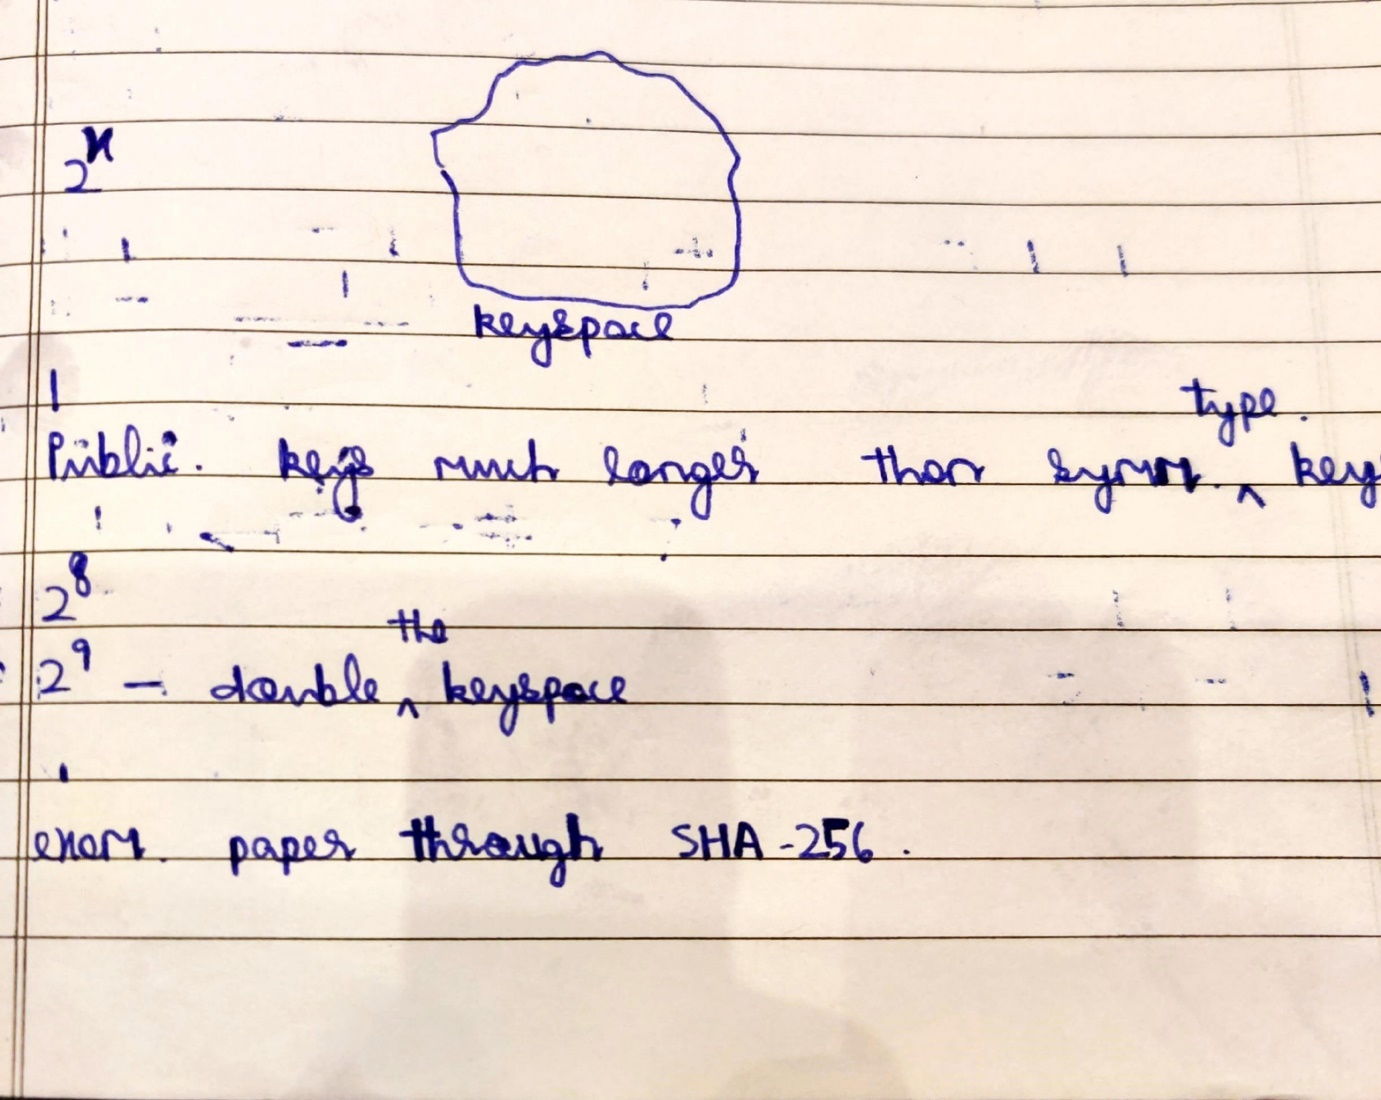 2^n
keyspace
Public. keys much longer than symm. type. key
2^8
2^9 — double the keyspace
exam. paper through SHA-256.